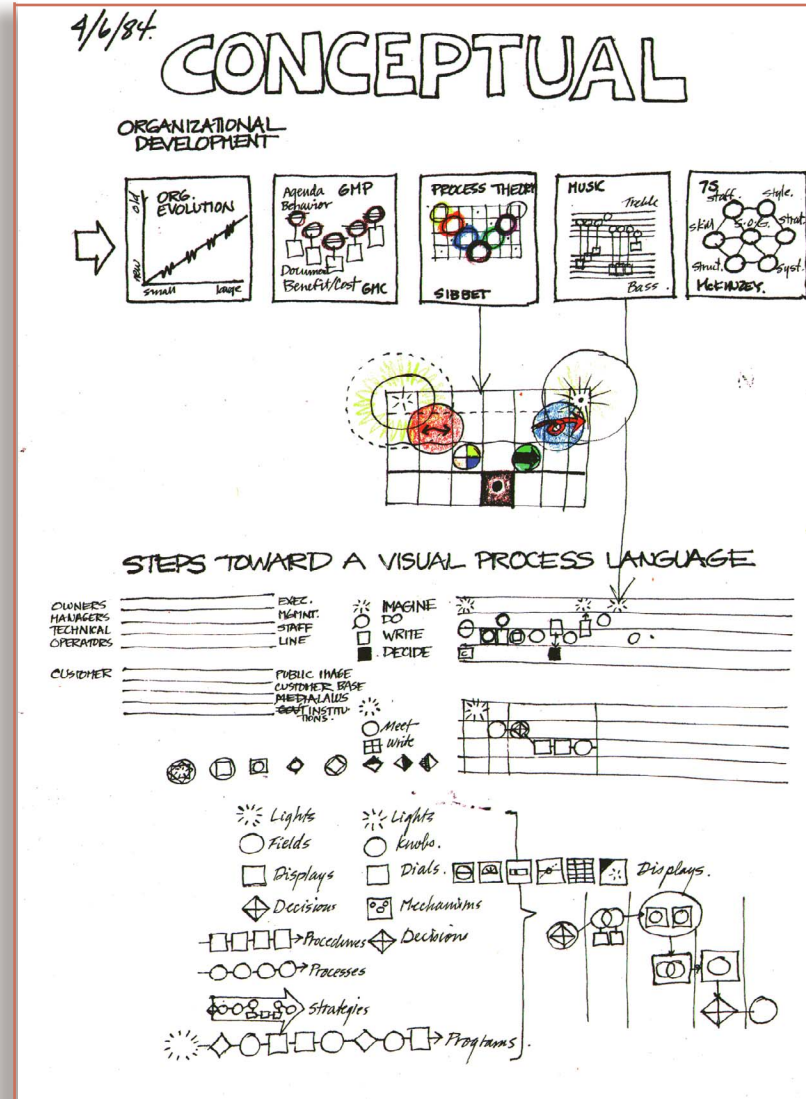 4/6/84.
CONCEPTUAL
ORGANIZATIONAL
DEVELOPMENT
old
ORG.
EVOLUTION
new
small large
Agenda GMP
Behavior
Document
Benefit/Cost GMC
PROCESS THEORY
SIBBET
MUSIC
Treble
Bass
7S
staff. style.
skill S.O.G. strat.
struct. syst.
McKINZEY.
STEPS TOWARD A VISUAL PROCESS LANGUAGE
OWNERS EXEC.
MANAGERS MGMNT.
TECHNICAL STAFF
OPERATORS LINE
IMAGINE
DO
WRITE
DECIDE
C
CUSTOMER PUBLIC IMAGE
CUSTOMER BASE
MEDIA LAWS
GOVT INSTITU-
TIONS.
Meet
Write
Lights Lights
Fields Knobs.
Displays Dials. Displays.
Decisions Mechanisms
Procedures Decisions
Processes
Strategies
Programs.